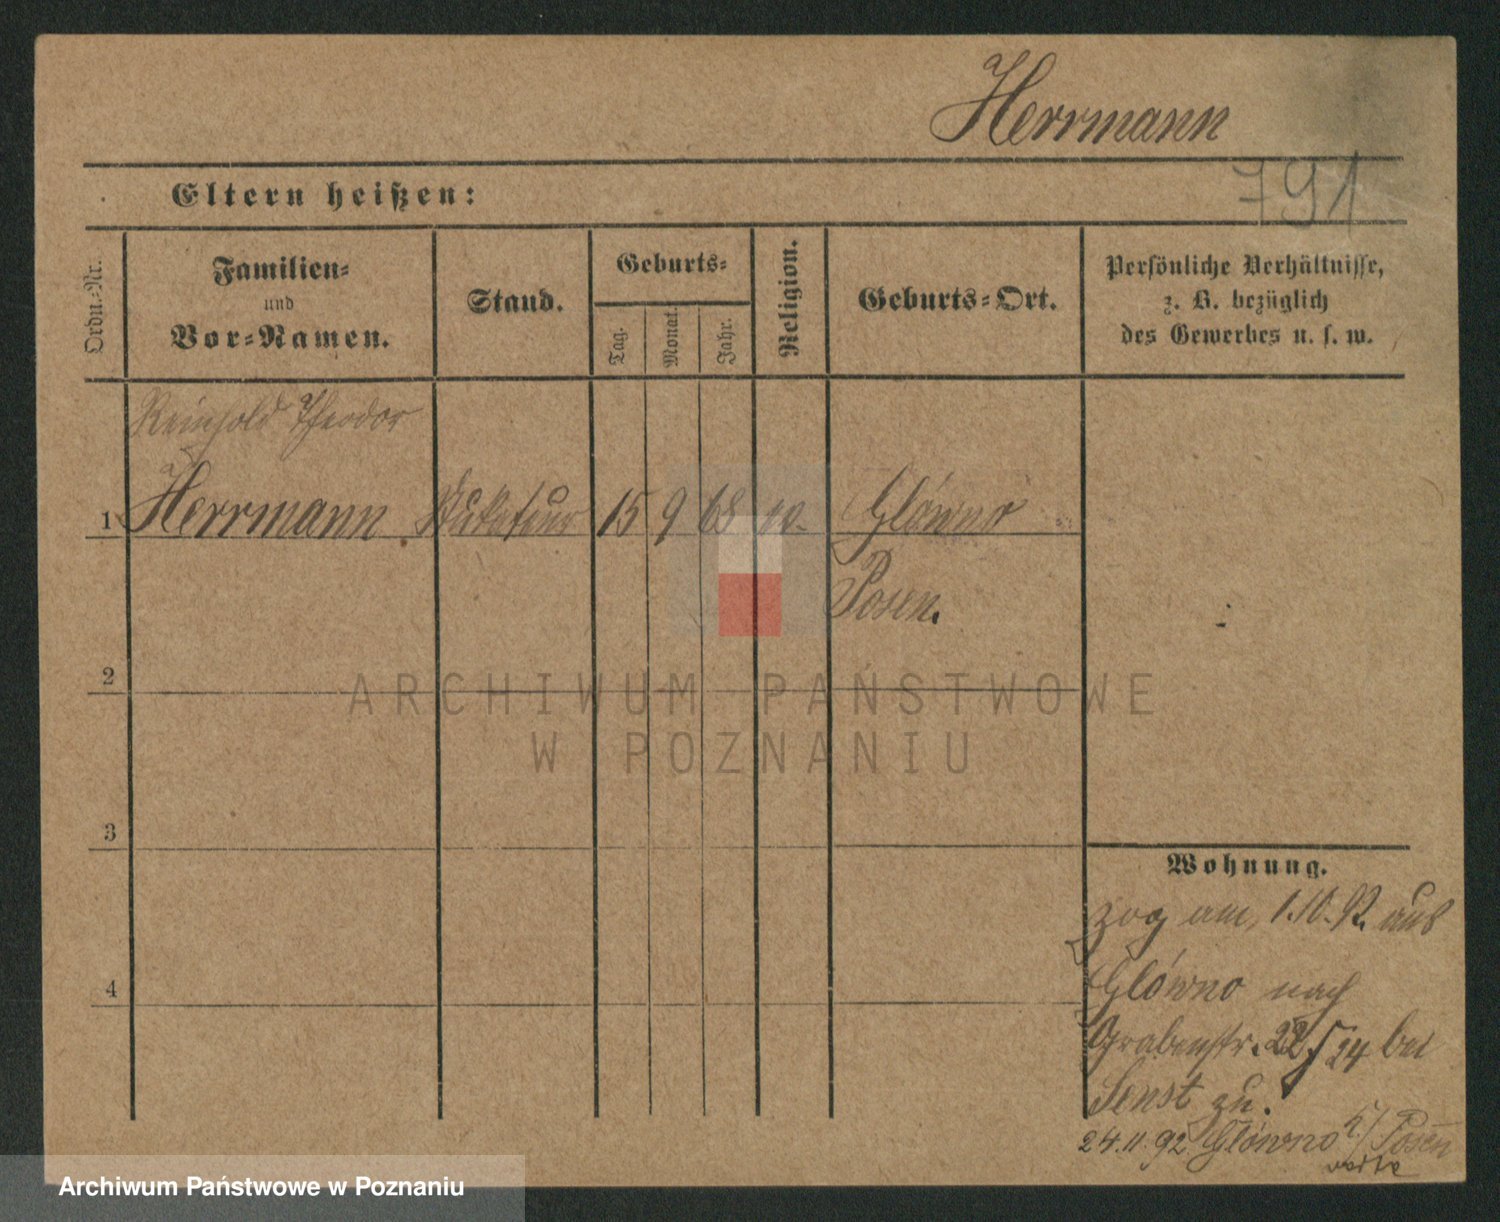 Herrmann
791
Eltern heißen:
Ordn.-Nr.
Familien-
und
Vor-Namen.
Stand.
Geburts-
Tag.
Monat.
Jahr.
Religion.
Geburts-Ort.
Persönliche Verhältnisse,
z. B. bezüglich
des Gewerbes u. s. w.
Reinhold Theodor
1 Herrmann Stukateur 15 9 68 Glówno
Posen.
2
ARCHIWUM PAŃSTWOWE
W POZNANIU
3
Wohnung.
zog am 1.10.92. aus
4
Glówno nach
Grabenstr. 22/24 bei
Senst zu.
24.11.92 Glówno b/Posen
Archiwum Państwowe w Poznaniu